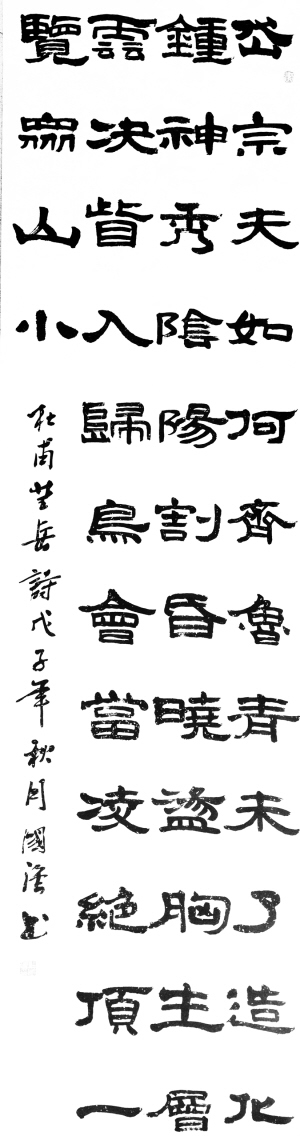 岱宗夫如何齊魯青未了造化
鍾神秀陰陽割昏曉盪胸生層
雲决眥入歸鳥會當凌絕頂一
覽眾山小
杜甫望岳詩戊子年秋月國書